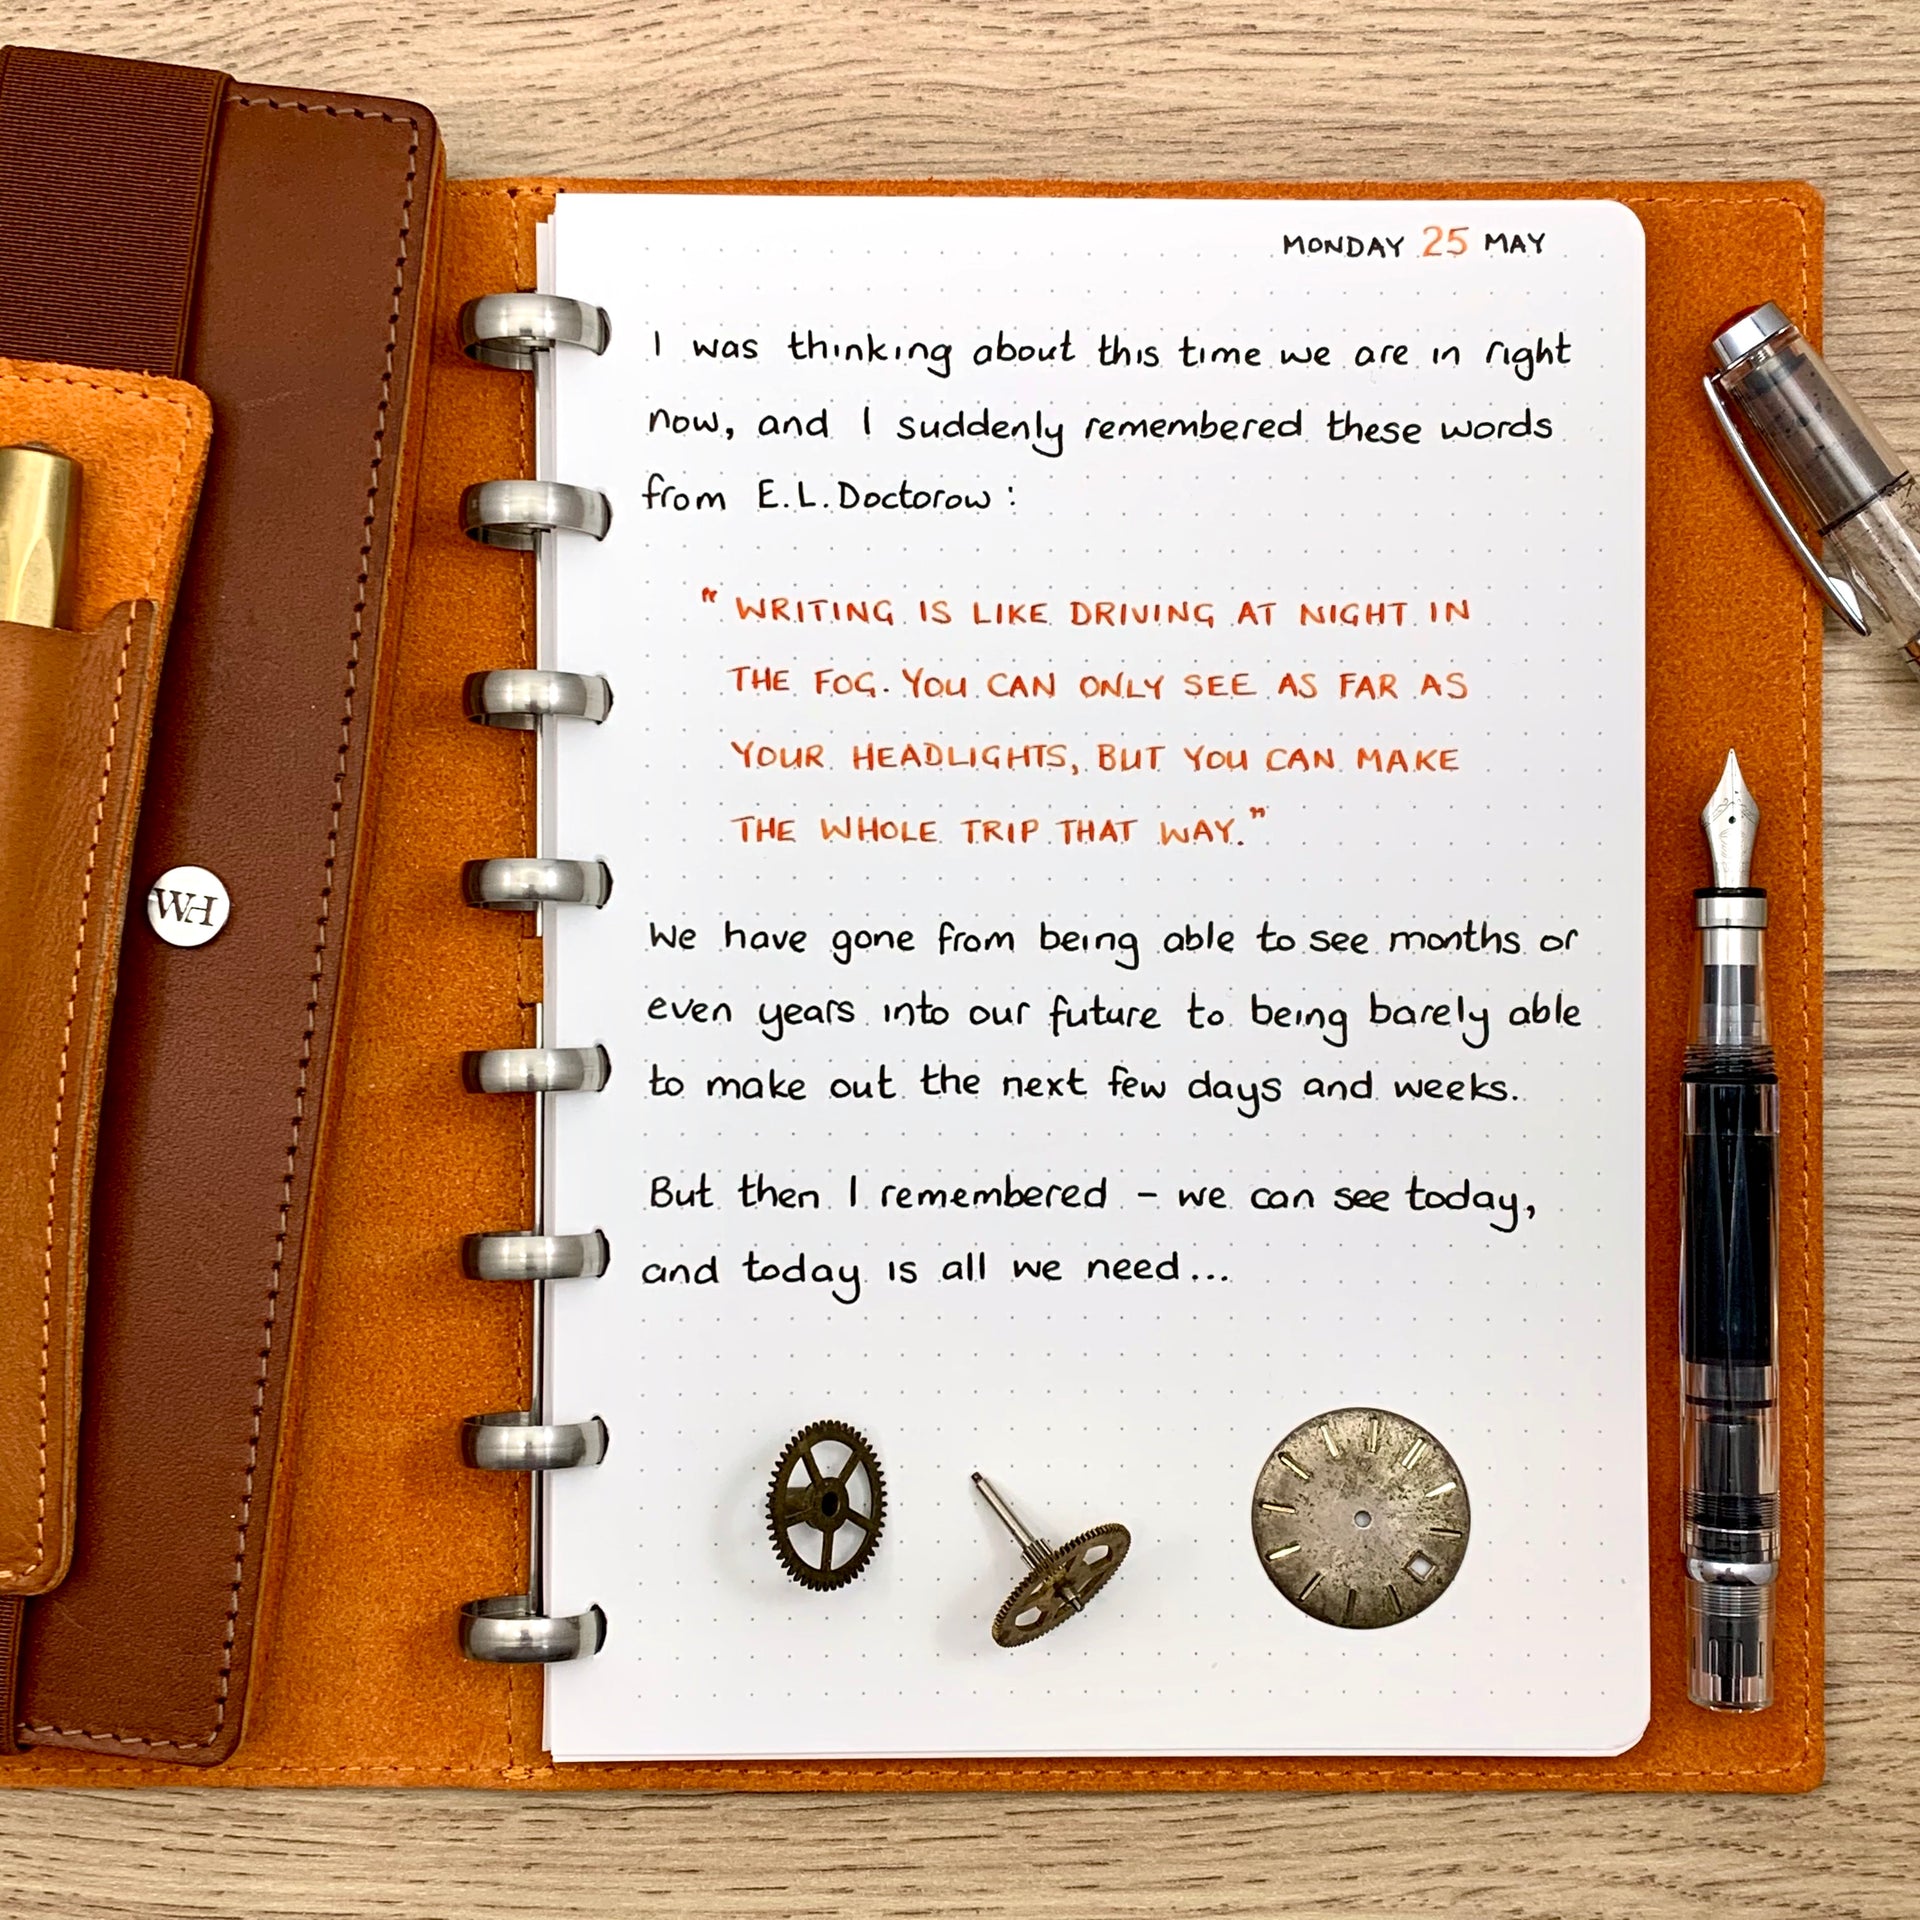 MONDAY 25 MAY
I was thinking about this time we are in right
now, and I suddenly remembered these words
from E.L. Doctorow:
"WRITING IS LIKE DRIVING AT NIGHT IN
THE FOG. YOU CAN ONLY SEE AS FAR AS
YOUR HEADLIGHTS, BUT YOU CAN MAKE
THE WHOLE TRIP THAT WAY."
We have gone from being able to see months or
even years into our future to being barely able
to make out the next few days and weeks.
But then I remembered – we can see today,
and today is all we need...
WH